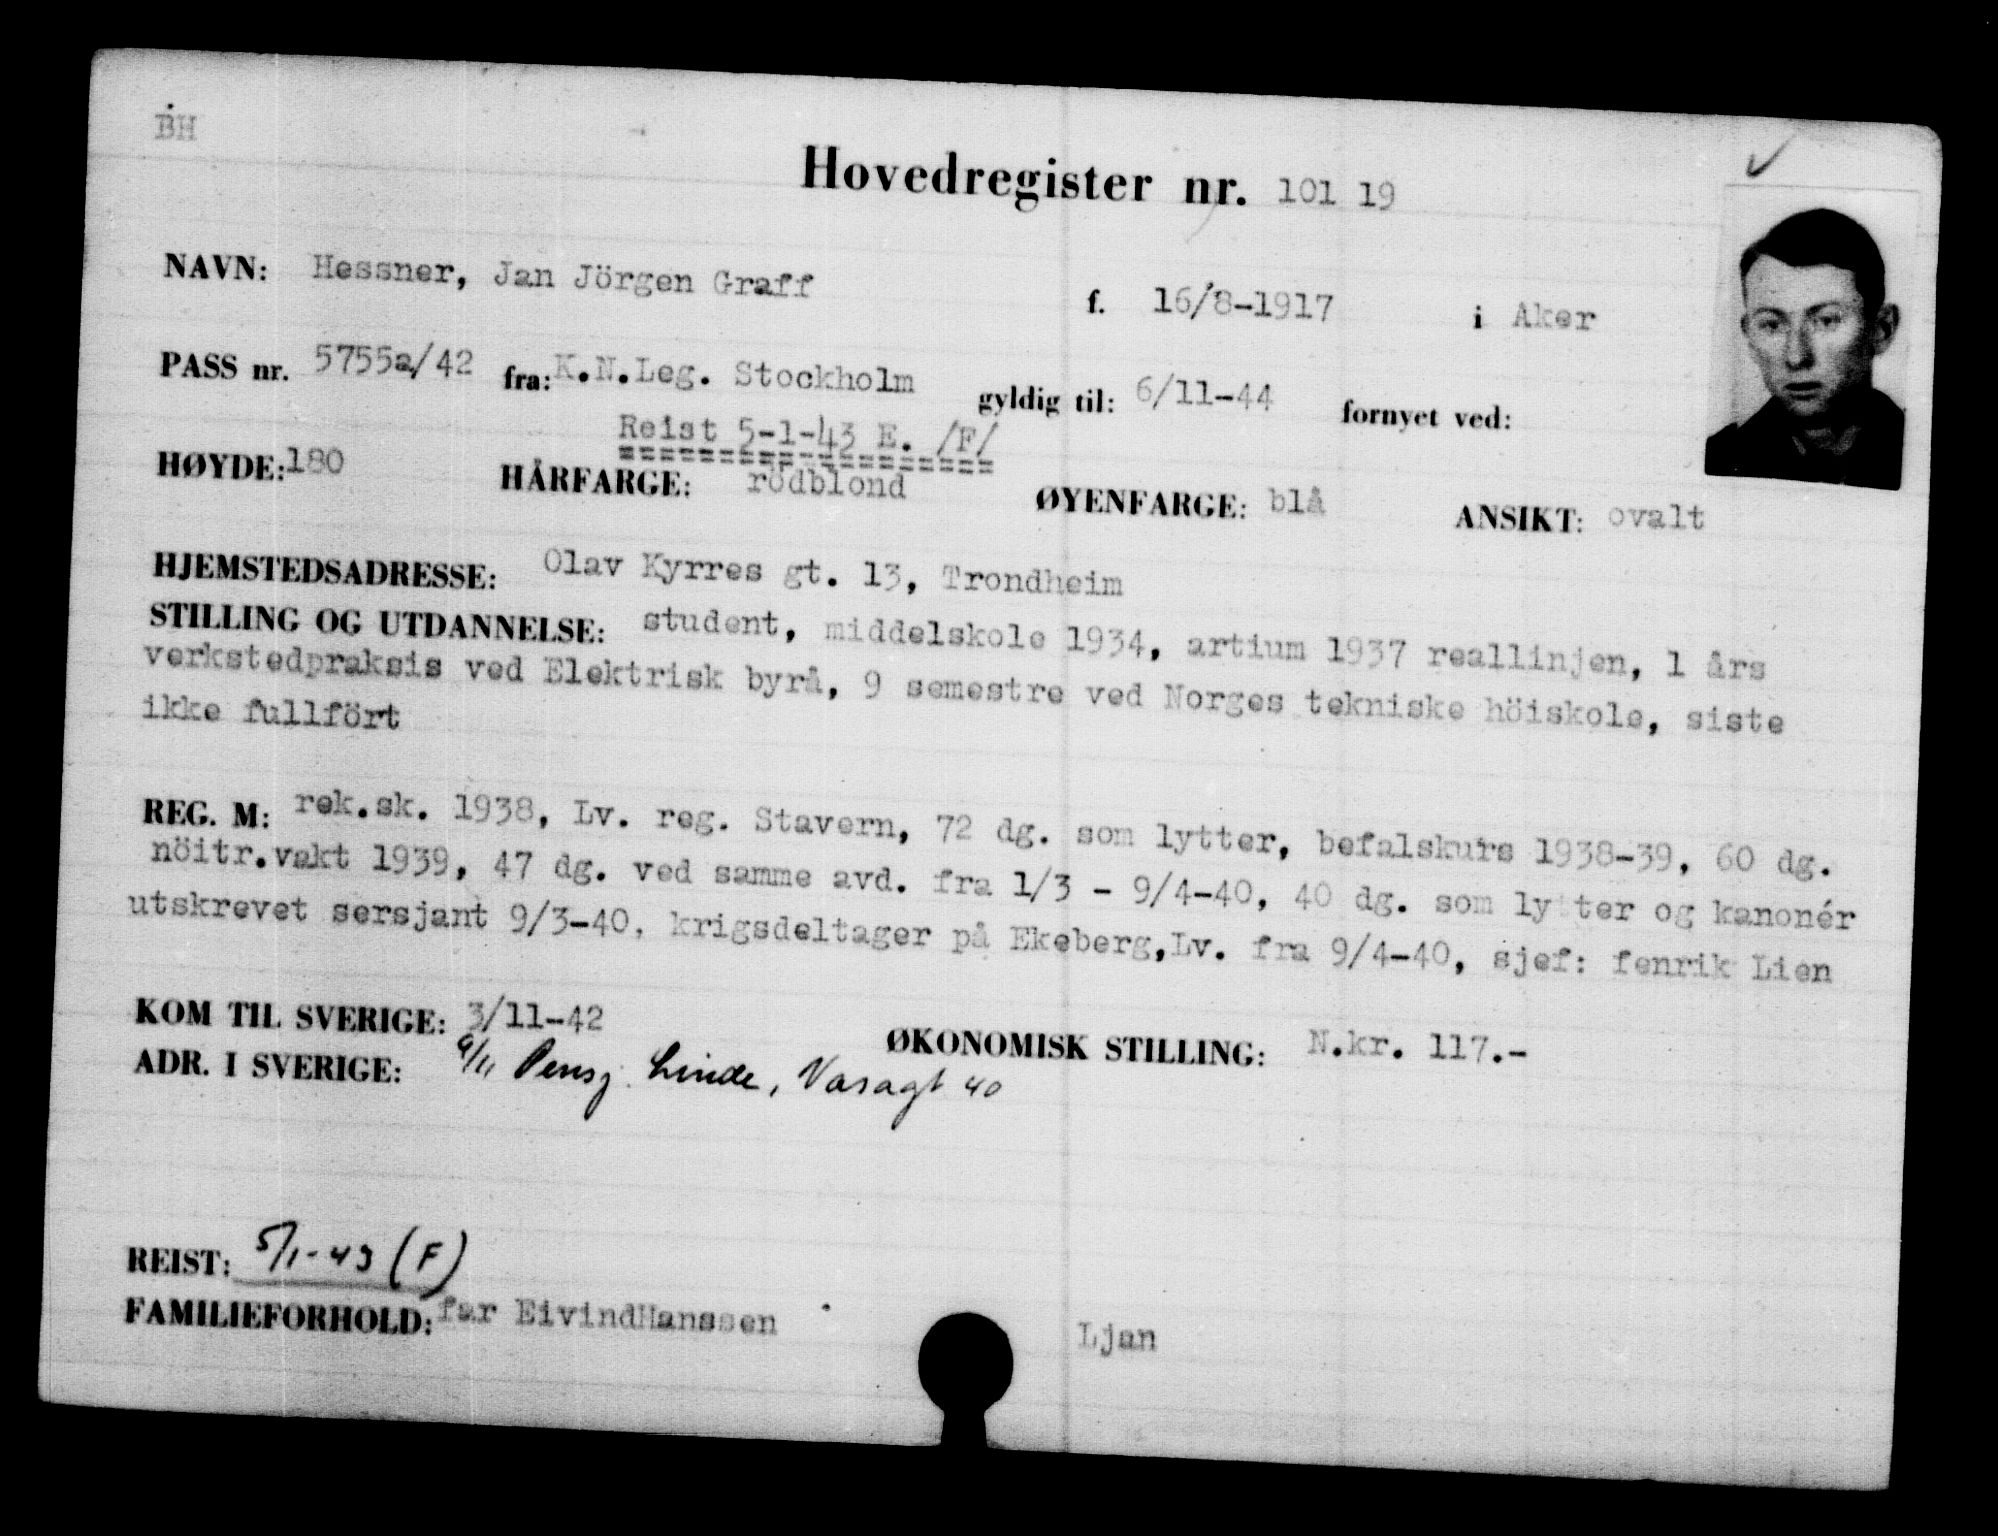 BH
Hovedregister nr. 101 19
NAVN: Hessner, Jan Jörgen Graff f. 16/8-1917 i Aker
PASS nr. 5755a/42 fra: K.N.Leg. Stockholm gyldig til: 6/11-44 fornyet ved:
Reist 5-1-43 E. /F/
HØYDE: 180 HÅRFARGE: rödblond ØYENFARGE: blå ANSIKT: ovalt
HJEMSTEDSADRESSE: Olav Kyrres gt. 13, Trondheim
STILLING OG UTDANNELSE: student, middelskole 1934, artium 1937 reallinjen, 1 års
verkstedpraksis ved Elektrisk byrå, 9 semestre ved Norges tekniske höiskole, siste
ikke fullfört
REG. M: rek.sk. 1938, Lv. reg. Stavern, 72 dg. som lytter, befalskurs 1938-39, 60 dg.
nöitr.vakt 1939, 47 dg. ved samme avd. fra 1/3 - 9/4-40, 40 dg. som lytter og kanonér
utskrevet sersjant 9/3-40, krigsdeltager på Ekeberg,Lv. fra 9/4-40, sjef: fenrik Lien
KOM TIL SVERIGE: 3/11-42 ØKONOMISK STILLING: N.kr. 117.-
ADR. I SVERIGE: 9/11 Pensj. Linde, Vasagt 40
REIST: 5/1-43 (F)
FAMILIEFORHOLD: far EivindHanssen Ljan